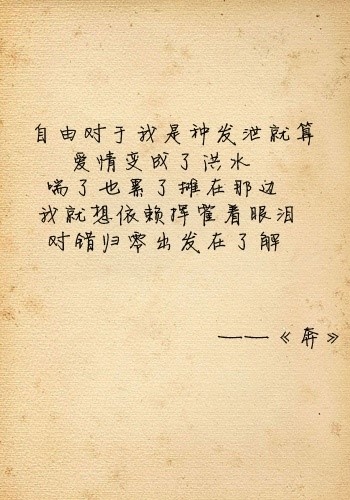 自由对于我是种发泄就算
爱情变成了洪水
喘了也累了摊在那边
我就想依赖挥霍着眼泪
对错归零出发在了解
——《奔》